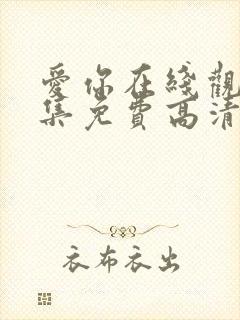 愛你在綫觀
集免費高清
衣布衣出